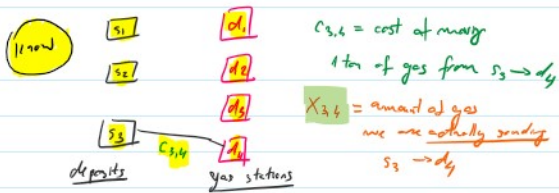 know
s1
s2
s3
deposits
C3,4
d1
d2
d3
d4
gas stations
C3,4 = cost of moving
1 ton of gas from s3 → d4
X3,4 = amount of gas
we are actually sending
s3 → d4